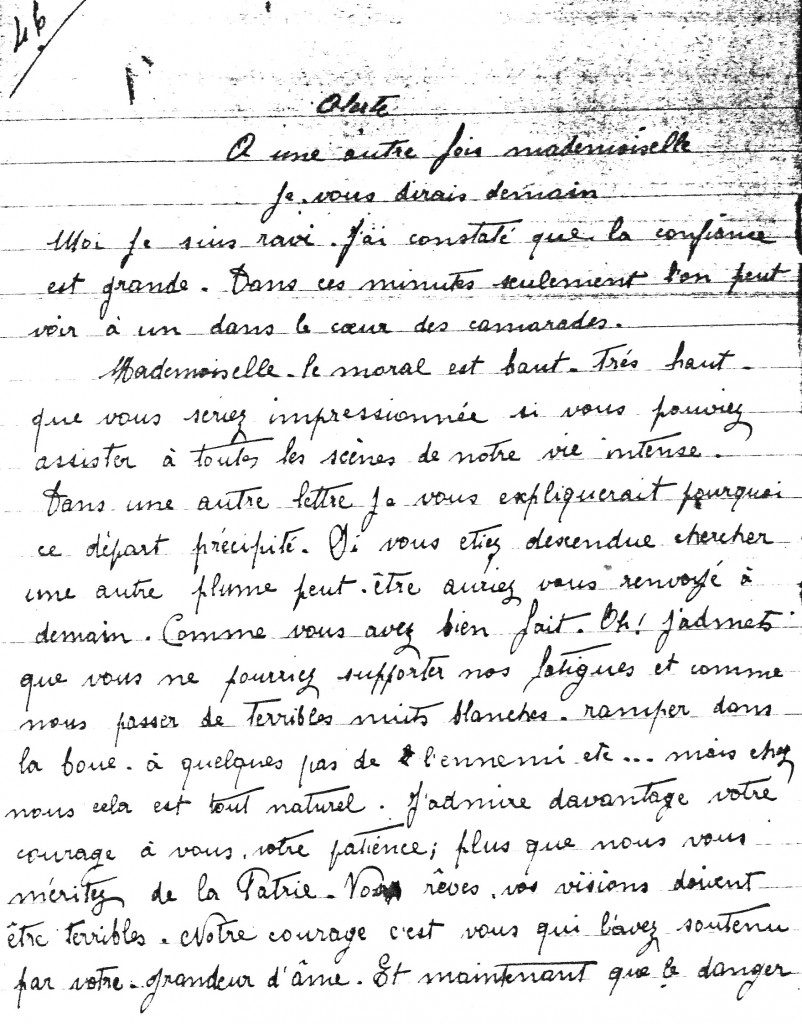 46
1°
Alerte
A une autre fois mademoiselle
Je vous dirais demain
Moi je suis ravi. J'ai constaté que la confiance
est grande. Dans ces minutes seulement l'on peut
voir à un dans le cœur des camarades.
Mademoiselle. le moral est haut. Très haut.
que vous seriez impressionnée si vous pouviez
assister à toutes les scènes de notre vie intense.
Dans une autre lettre je vous expliquerait pourquoi
ce départ précipité. Si vous etiez descendue chercher
une autre plume peut-être auriez vous renvoyé à
demain. Comme vous avez bien fait. Oh! j'admets
que vous ne pourriez supporter nos fatigues et comme
nous passer de terribles nuits blanches. ramper dans
la boue. à quelques pas de l'ennemi etc... mais chez
nous cela est tout naturel. J'admire davantage votre
courage à vous, votre patience; plus que nous vous
méritez de la Patrie. Vos rêves, vos visions doivent
être terribles. Notre courage c'est vous qui l'avez soutenu
par votre grandeur d'âme. Et maintenant que le danger